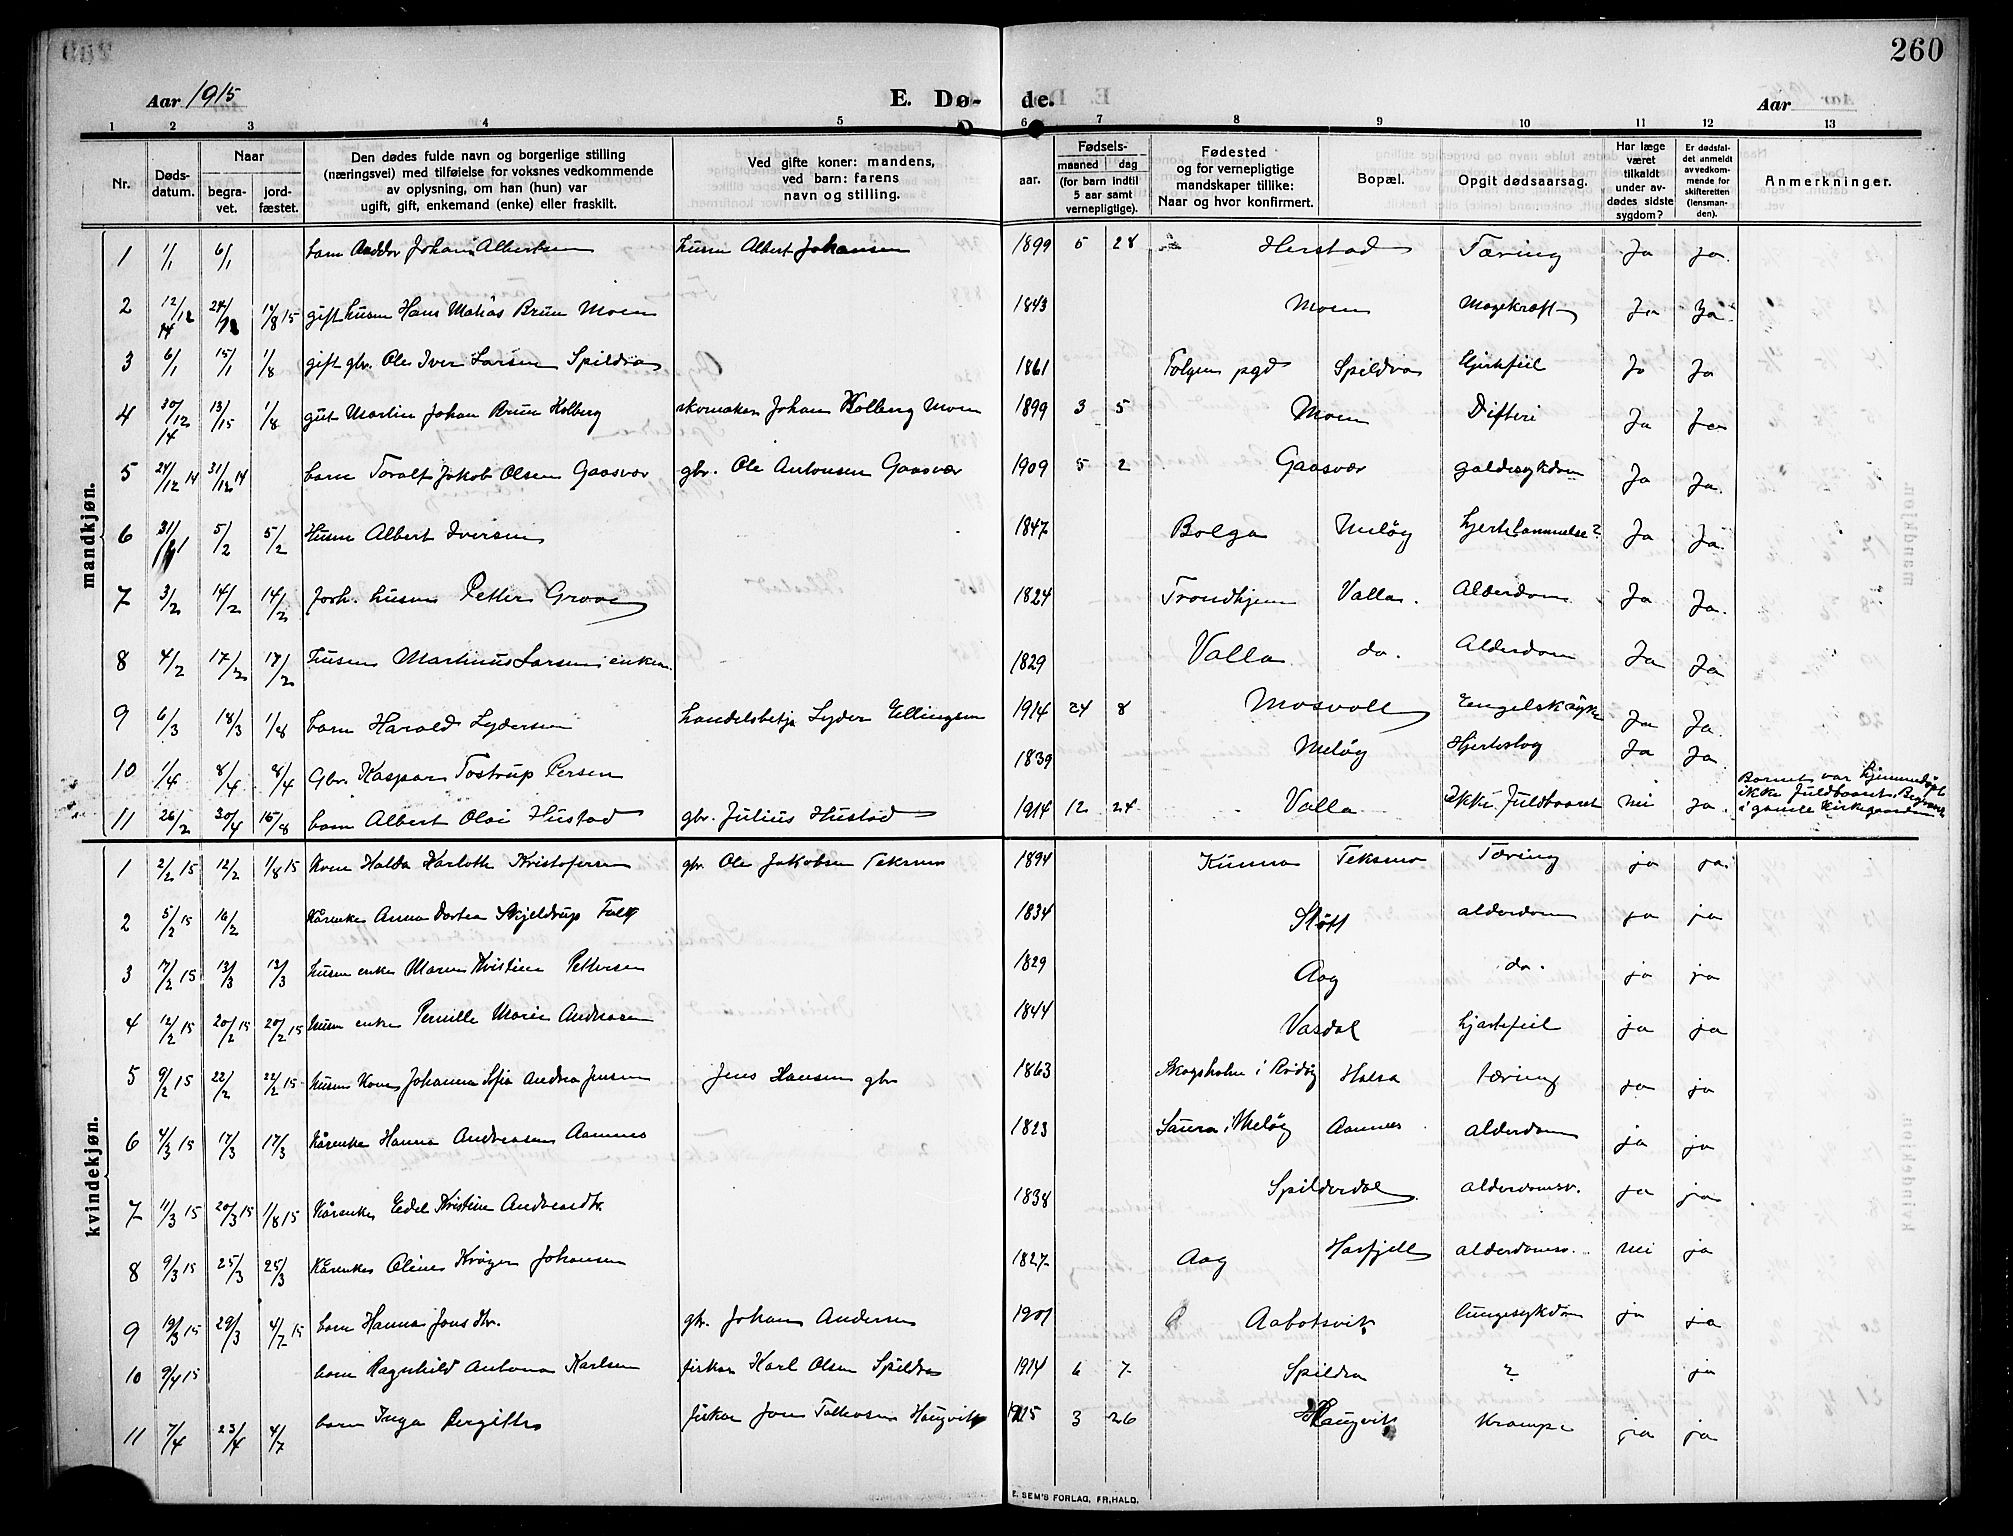 260
Aar 1915 E. Dø- de. Aar
1 2 3 4 5 6 7 8 9 10 11 12 13
Nr. Døds-datum. Naar begra-vet. jord-fæstet. Den dødes fulde navn og borgerlige stilling (næringsvei) med tilføielse for voksnes vedkommende av oplysning, om han (hun) var ugift, gift, enkemand (enke) eller fraskilt. Ved gifte koner: mandens, ved barn: farens navn og stilling. Fødsels- aar. maaned dag (for barn indtil 5 aar samt vernepligtige). Fødested og for vernepligtige mandskaper tillike: Naar og hvor konfirmert. Bopæl. Opgit dødsaarsag. Har læge været tilkaldt under av-dødes sidste sygdom? Er dødsfal-det anmeldt av vedkom-mende for skifteretten (lensman-den). Anmerkninger.
mandkjøn.
1 1/1 6/1 barn Johan Albertsen husm Albert Johansen 1899 5 28 Herstad Tæring Ja ja.
2 12/12 14 24/12 14/8 15 gift husm Hans Matias Bruun Moen 1843 Moen Mavekræft Ja Ja
3 6/1 15/1 1/8 gift gbr. Ole Iver Larsen Spildra 1861 Tolgen pgd Spildra Hjertefeil Ja Ja
4 30/12 14 13/15 1/8 gut Martin Johan Bruun Kolberg skomaker Johan Kolberg Moen 1899 3 5 Moen Difteri Ja Ja
5 24/12 14 31/12 14 barn Toralf Jakob Olsen Gaasvær gbr. Ole Antonsen Gaasvær 1909 5 2 Gaasvær galdesykdom Ja Ja.
6 31/1 5/2 5/2 Husm Albert Iversen 1847 Bolga Meløy hjertelammelse? Ja Ja.
7 3/2 14/2 14/2 forh. husm Petter Grove 1824 Trondhjem Valla. Alderdom Ja Ja.
8 4/2 17/2 17/2 husm Martinus Larsen enkem. 1829 Valla do. Alderdom Ja Ja
9 6/3 18/3 1/8 barn Harald Lydersen handelsbetj Lyder Ellingsen 1914 24 8 Mosvoll Engelsk syke Ja Ja.
10 1/4 8/4 8/4 Gbr. Kaspar Tostrup Persen 1839 Meløy Hjerteslag Ja Ja
11 26/2 30/4 15/8 barn Albert Olai Hustad gbr. Julius Hustad 1914 12 24 Valla Ikke fuldbaaret nei Ja. Barnet var hjemmedøpt ikke fuldbaaret. Begravet i gamle kirkegaarden
kvindekjøn.
1 2/2 15 12/2 1/8 15 Kone Halda Karloth Kristofersen gbr. Ole Jakobsen Teksmo 1894 Kunna Teksmo Tæring ja ja
2 5/2 15 16/2 Kårenke Anna Dortea Skjeldrup Falk 1834 Støtt alderdom ja ja
3 17/2 15 13/3 13/3 husm enke Maren Kristine Pettersen 1829 Aag do. ja ja
4 12/2 15 20/2 15 20/2 15 husm enke Pernille Marie Andreasen 1844 Vasdal hjertefeil ja ja
5 9/2 15 22/2 22/2 15 husm kone Johanna Sofia Andrea Jensen Jens Hansen gbr 1863 Skogsholm i Rødøy Halsa tæring ja ja
6 4/3 15 17/3 17/3 Kårenke Hanna Andreasen Aamnes 1823 Saura i Meløy Aamnes alderdom ja ja
7 11/3 15 20/3 15 1/8 15 Kårenke Edel Kristine Andreasdtr. 1838 Spilderdal alderdomsv. ja ja
8 9/3 15 25/3 25/3 Kårenke Oline Krøger Johansen 1827 Aag Harfjell alderdomsv. nei ja
9 19/3 15 29/3 4/7 15 barn Hanna Jonsdtr. gbr. Johan Andersen 1901 Aabotsvik lungesykdom ja ja
10 9/4 15 barn Ragnhild Antona Karlsen fisker Karl Olsen Spildra 1914 6 7 Spildra ? ja
11 7/4 23/4 4/7 barn Inga Bergitte fisker Jon Tollevsen Haugvik 1915 3 26 Haugvik Krampe ja ja
E. SEM'S FORLAG, FR.HALD.